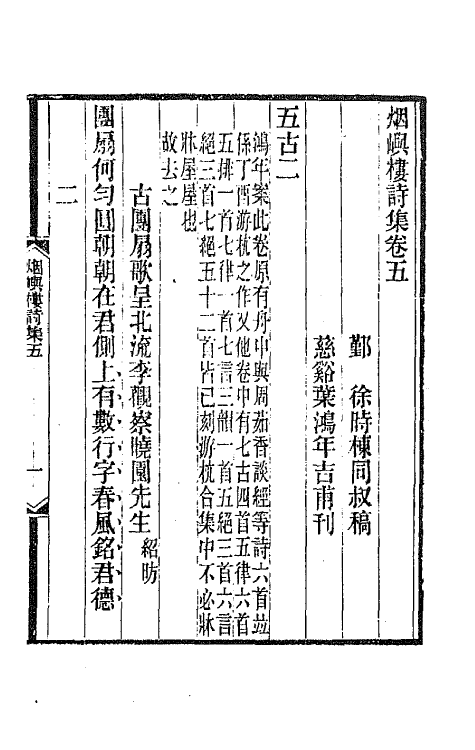 烟嶼樓詩集卷五
鄞　徐時棟同叔稿
慈谿葉鴻年吉甫刊
五古二
鴻年案此卷原有舟中與周茄香談經等詩六首並
係丁酉游杭之作又他卷中有七古四首五律六首
五排一首七律一首七言三韻一首五絕三首六言
絕三首七絕五十二首皆已刻游杭合集中不必牀
牀屋屋也
故去之
古團扇歌呈北流李觀察曉園先生紹昉
團扇何勻圓朝朝在君側上有數行字春風銘君德
二
烟嶼樓詩集五
一